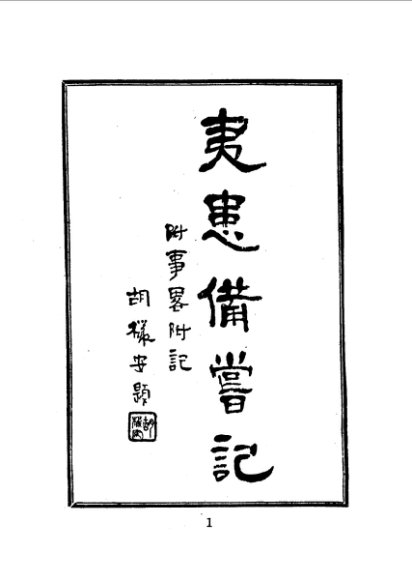 夷患備嘗記
附事畧附記
胡樸安題
1